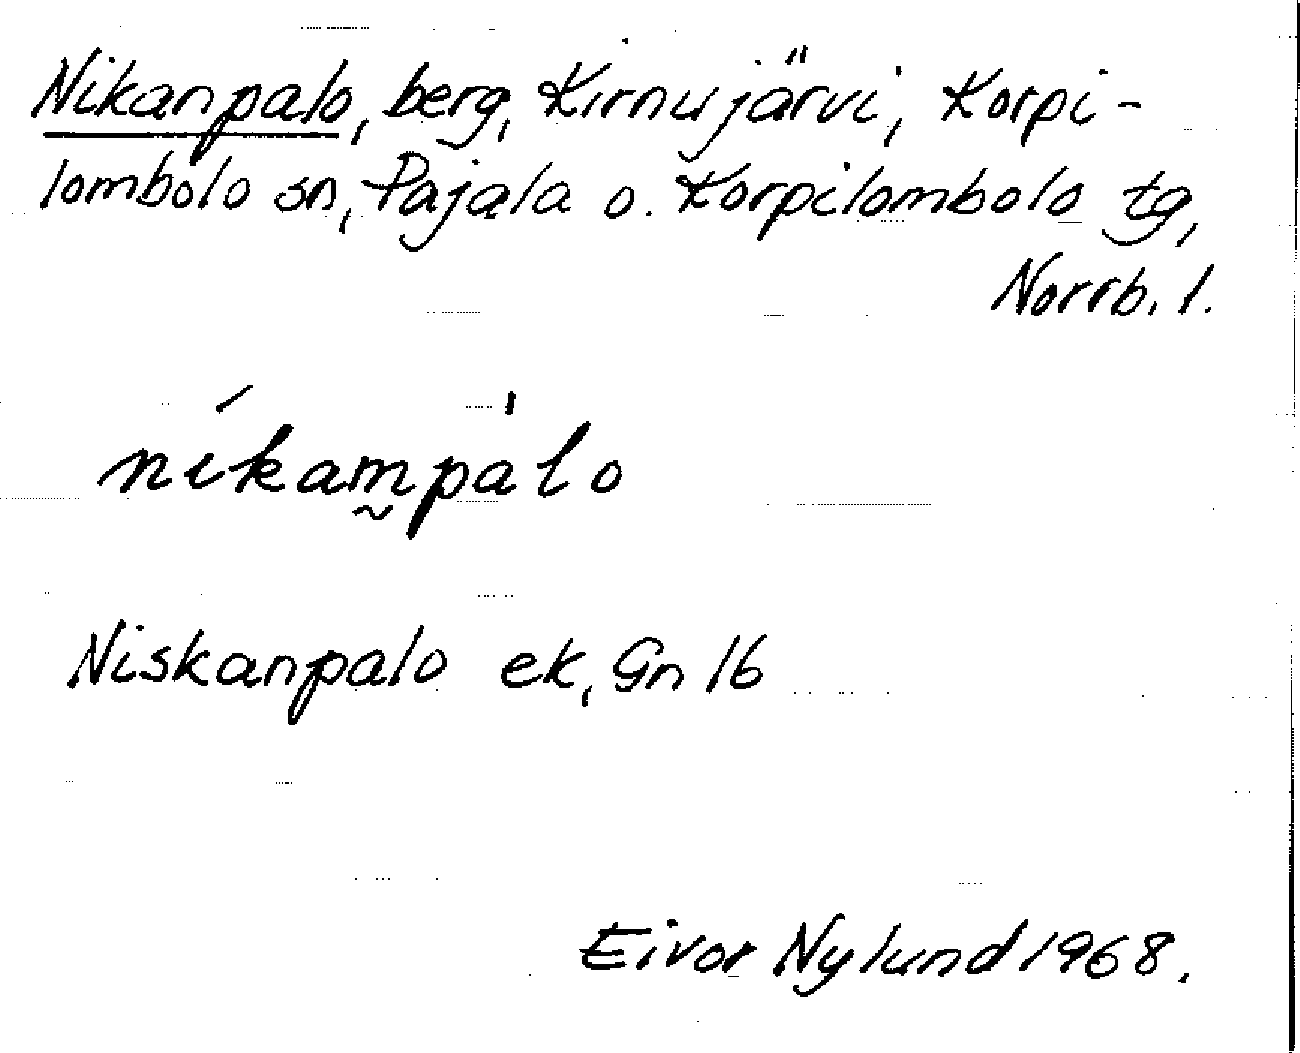 Nikanpalo, berg, Kirnujärvi, Korpi-
lombolo sn, Pajala o. Korpilombolo tg,
Norrb. l.
níkam̰pàlo
Niskanpalo ek, Gn 16
Eivor Nylund 1968.